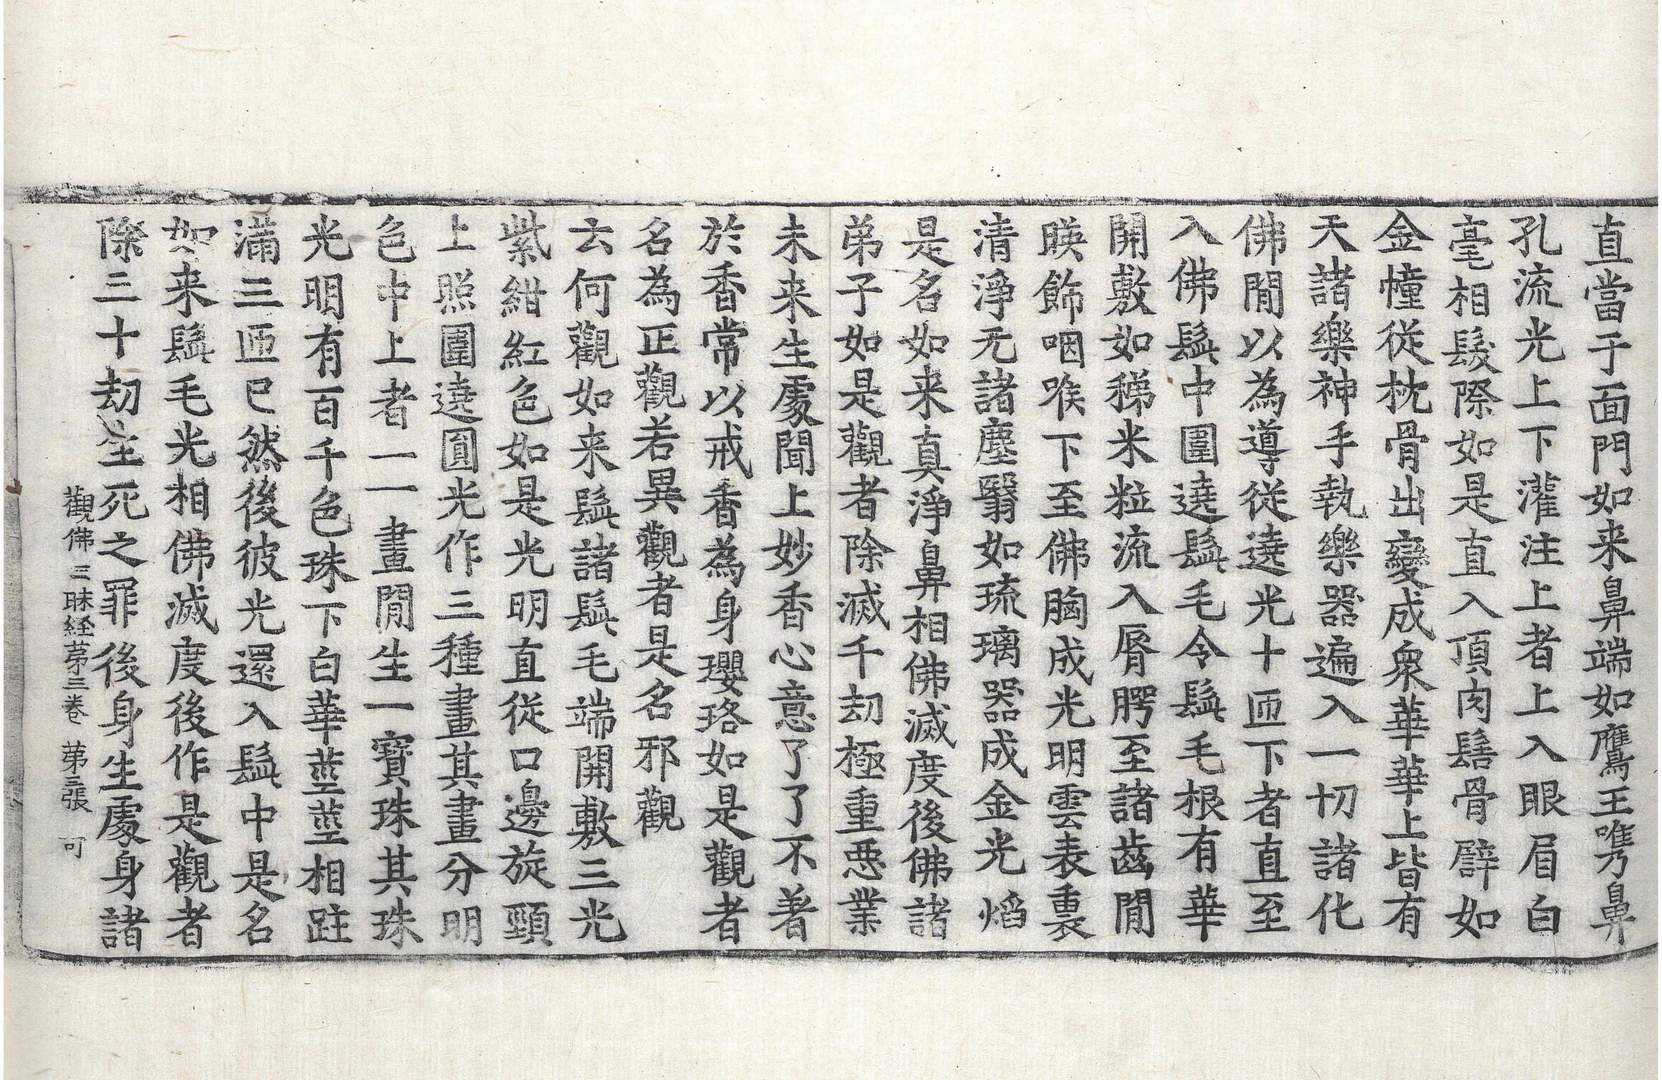 直當于面門如来鼻端如鷹王㗛鼻
孔流光上下灌注上者上入眼眉白
毫相髮際如是直入頂肉髻骨臂如
金幢從枕骨出變成衆華華上皆有
天諸樂神手執樂器遍入一切諸化
佛間以為導從遶光十匝下者直至
入佛髭中圍遶髭毛令髭毛根有華
開敷如稊米粒流入脣腭至諸齒間
暎飾咽喉下至佛胸成光明雲表裏
清淨无諸塵翳如琉璃器成金光焰
是名如来真淨鼻相佛滅度後佛諸
弟子如是觀者除滅千劫極重惡業
未来生處聞上妙香心意了了不著
於香常以戒香為身瓔珞如是觀者
名為正觀若異觀者是名邪觀
云何觀如来髭諸髭毛端開敷三光
紫紺紅色如是光明直從口邊旋頸
上照圍遶圓光作三種畫其畫分明
色中上者一一畫間生一寶珠其珠
光明有百千色珠下白華莖莖相跓
滿三匝已然後彼光還入髭中是名
如来髭毛光相佛滅度後作是觀者
除三十劫生死之罪後身生處身諸
觀佛三昧経苐三卷 苐三張 可